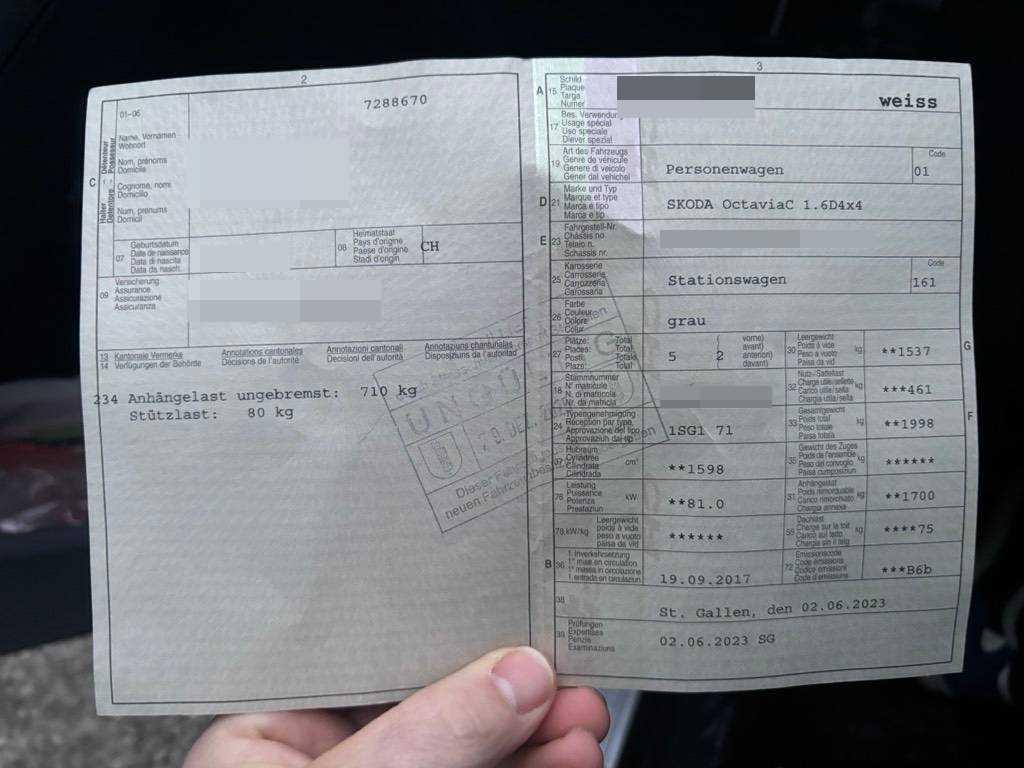 2
7288670
01-06
Name, Vornamen
Wohnort
Nom, prénoms
Domicile
Cognome, nomi
Domicilio
Num, prenums
Domicil
C
Halter
Détenteur
07
Geburtsdatum
Date de naissance
Data di nascita
Data da nasch.
08
Heimatstaat
Pays d'origine
Paese d'origine
Stadi d'origin
CH
09
Versicherung
Assurance
Assicurazione
Assicuranza
13
14
Kantonale Vermerke
Verfügungen der Behörde
Annotations cantonales
Décisions de l'autorité
Annotazioni cantonali
Decisioni dell'autorità
Annotaziuns chantunalas
Disposiziuns da l'autoritad
234 Anhängelast ungebremst: 710 kg
Stützlast: 80 kg
DEZ.
Dieser
neuen
3
A
15
Schild
Plaque
Targa
Numer
weiss
17
Bes. Verwendung
Usage spécial
Uso speciale
Diever spezial
19
Art des Fahrzeugs
Genre de véhicule
Genere di veicolo
Gener dal vehichel
Personenwagen
Code
01
D
21
Marke und Typ
Marque et type
Marca e tipo
Marca e tip
SKODA OctaviaC 1.6D4x4
E
23
Fahrgestell-Nr.
Châssis no
Telaio n.
Schassis nr.
25
Karosserie
Carrosserie
Carrozzeria
Carossaria
Stationswagen
Code
161
26
Farbe
Couleur
Colore
Colur
grau
27
Plätze: Total
Places: Total
Posti: Totale
Plazs: Total
5
(2
vorne)
avant)
anteriori)
davant)
30
Leergewicht
Poids à vide
Peso a vuoto
Paisa da vid
kg
**1537
G
18
Stammnummer
N° matricule
N. di matricola
Nr. da matricla
32
Nutz-/Sattellast
Charge utile/sellette
Carico utile/sella
Chargia utila/sella
kg
***461
24
Typengenehmigung
Réception par type
Approvazione del tipo
Approvaziun da tip
1SG1 71
33
Gesamtgewicht
Poids total
Peso totale
Paisa totala
kg
**1998
F
37
Hubraum
Cylindrée
Cilindrata
Cilindrada
cm³
**1598
35
Gewicht des Zuges
Poids de l'ensemble
Peso del convoglio
Paisa cumposiziun
kg
******
76
Leistung
Puissance
Potenza
Prestaziun
kW
**81.0
31
Anhängelast
Poids remorquable
Carico rimorchiato
Chargia annexa
kg
**1700
78
kW/kg
Leergewicht
poids à vide
peso a vuoto
paisa da vid
******
55
Dachlast
Charge sur le toit
Carico sul tetto
Chargia sin il tetg
kg
****75
B
36
1. Inverkehrsetzung
1re mise en circulation
1a messa in circolazione
1. entrada en circulaziun
19.09.2017
72
Emissionscode
Code émissions
Codice emissioni
Code d'emissiuns
***B6b
38
St. Gallen, den 02.06.2023
39
Prüfungen
Expertises
Perizie
Examinaziuns
02.06.2023 SG